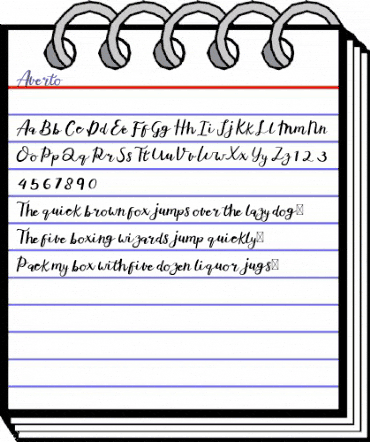 Averto
Aa Bb Cc Dd Ee Ff Gg Hh Ii Jj Kk Ll Mm Nn
Oo Pp Qq Rr Ss Tt Uu Vv Ww Xx Yy Zz 1 2 3
4 5 6 7 8 9 0
The quick brown fox jumps over the lazy dog
The five boxing wizards jump quickly
Pack my box with five dozen liquor jugs